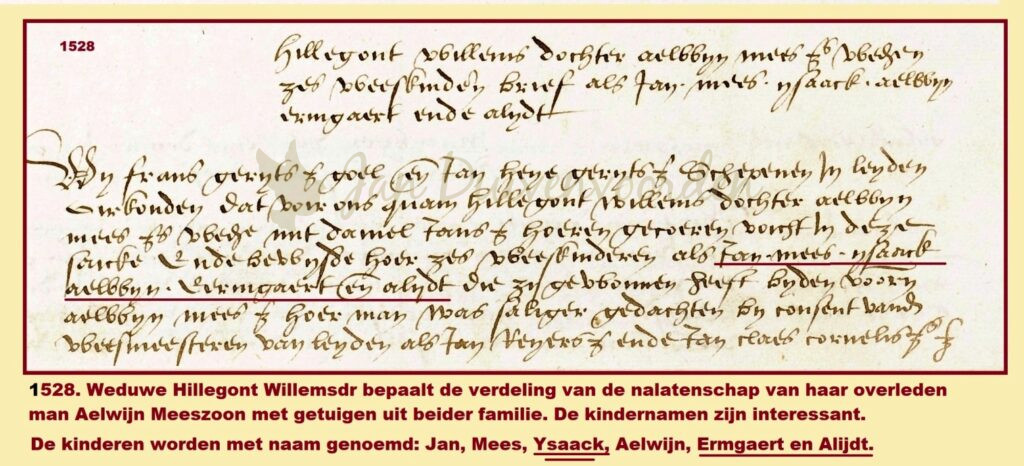 1528
Hillegont Willems dochter aelwyn mees ss weden
zes weeskinderen brief als Jan · mees · ysaack · aelwyn
ermgaert ende alydt
Wy frans gerytss goel en Jan heye gerytss Schepenen In leyden
Oirkonden dat voir ons quam hillegont willems dochter aelwyn
mees ss wede mit daniel Janss hoeren gecoeren voicht In deze
saicke Ende bewysde hoer zes weeskinderen als Jan · mees · ysaack
aelwyn · Eermgaert en alydt die zy gewonnen heeft byden voorn
aelwyn mees s hoer man was saliger gedachten by consent vand
weesmeesteren van leyden als Jan Reyerss ende Jan claes corneliss
1528. Weduwe Hillegont Willemsdr bepaalt de verdeling van de nalatenschap van haar overleden
man Aelwijn Meeszoon met getuigen uit beider familie. De kindernamen zijn interessant.
De kinderen worden met naam genoemd: Jan, Mees, Ysaack, Aelwijn, Ermgaert en Alijdt.